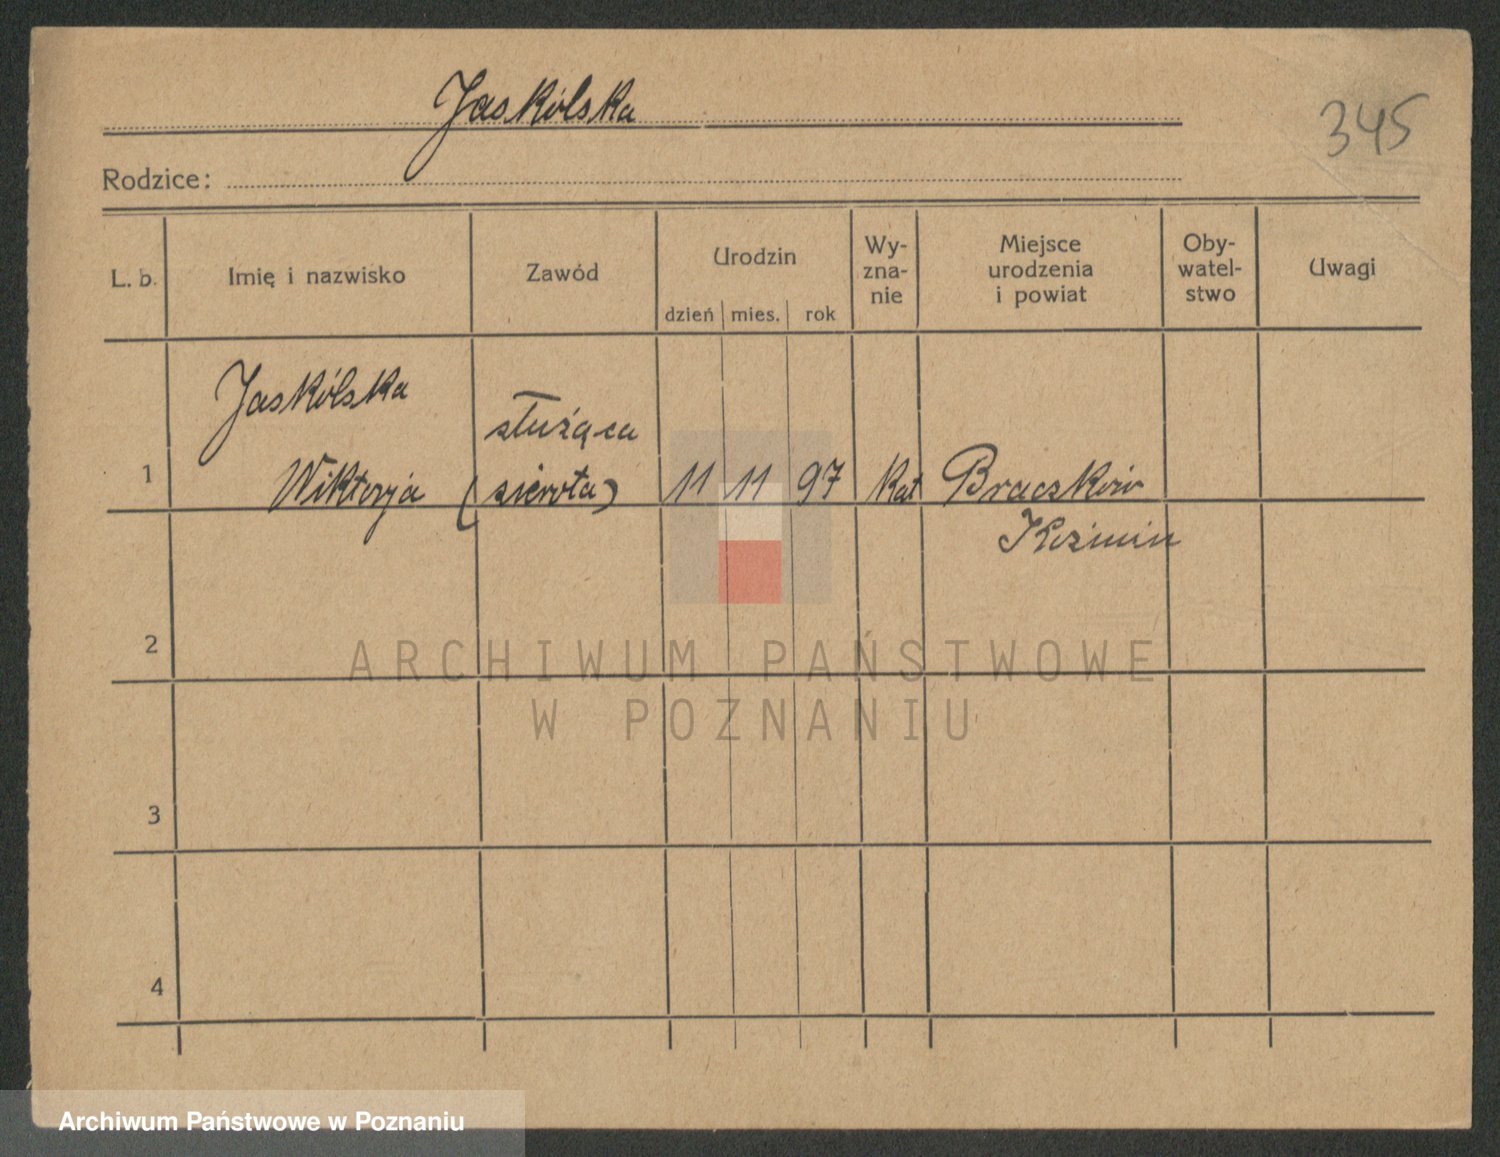 Jaskólska
345
Rodzice:
L. b.
Imię i nazwisko
Zawód
Urodzin
dzień mies. rok
Wy-
zna-
nie
Miejsce
urodzenia
i powiat
Oby-
watel-
stwo
Uwagi
Jaskólska
służąca
1 Wiktorja (sierota) 11 11 97 Kat Braczków
Koźmin
2
3
4
ARCHIWUM PAŃSTWOWE
W POZNANIU
Archiwum Państwowe w Poznaniu